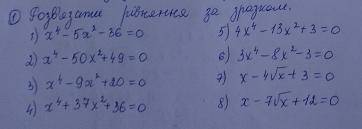 ① Розв'язати рівняння за зразком.
1) x⁴-5x²-36=0
2) x⁴-50x²+49=0
3) x⁴-9x²+20=0
4) x⁴+37x²+36=0
5) 4x⁴-13x²+3=0
6) 3x⁴-8x²-3=0
7) x-4√x+3=0
8) x-7√x+12=0